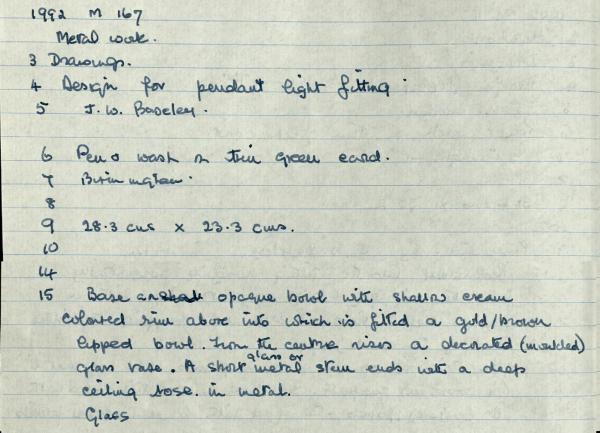 1992 M 167
Metal work.
3 Drawings.
4 Design for pendant light fitting.
5 J. W. Baseley.
6 Pen & wash on thin green card.
7 Birmingham.
8
9 28.3 cms x 23.3 cms.
10
14
15 Base an opaque bowl with shallow cream
coloured rim above into which is fitted a gold/brown
lipped bowl. From the centre rises a decorated (moulded)
glass vase. A short glass or metal stem ends with a deep
ceiling rose. in metal.
Glass